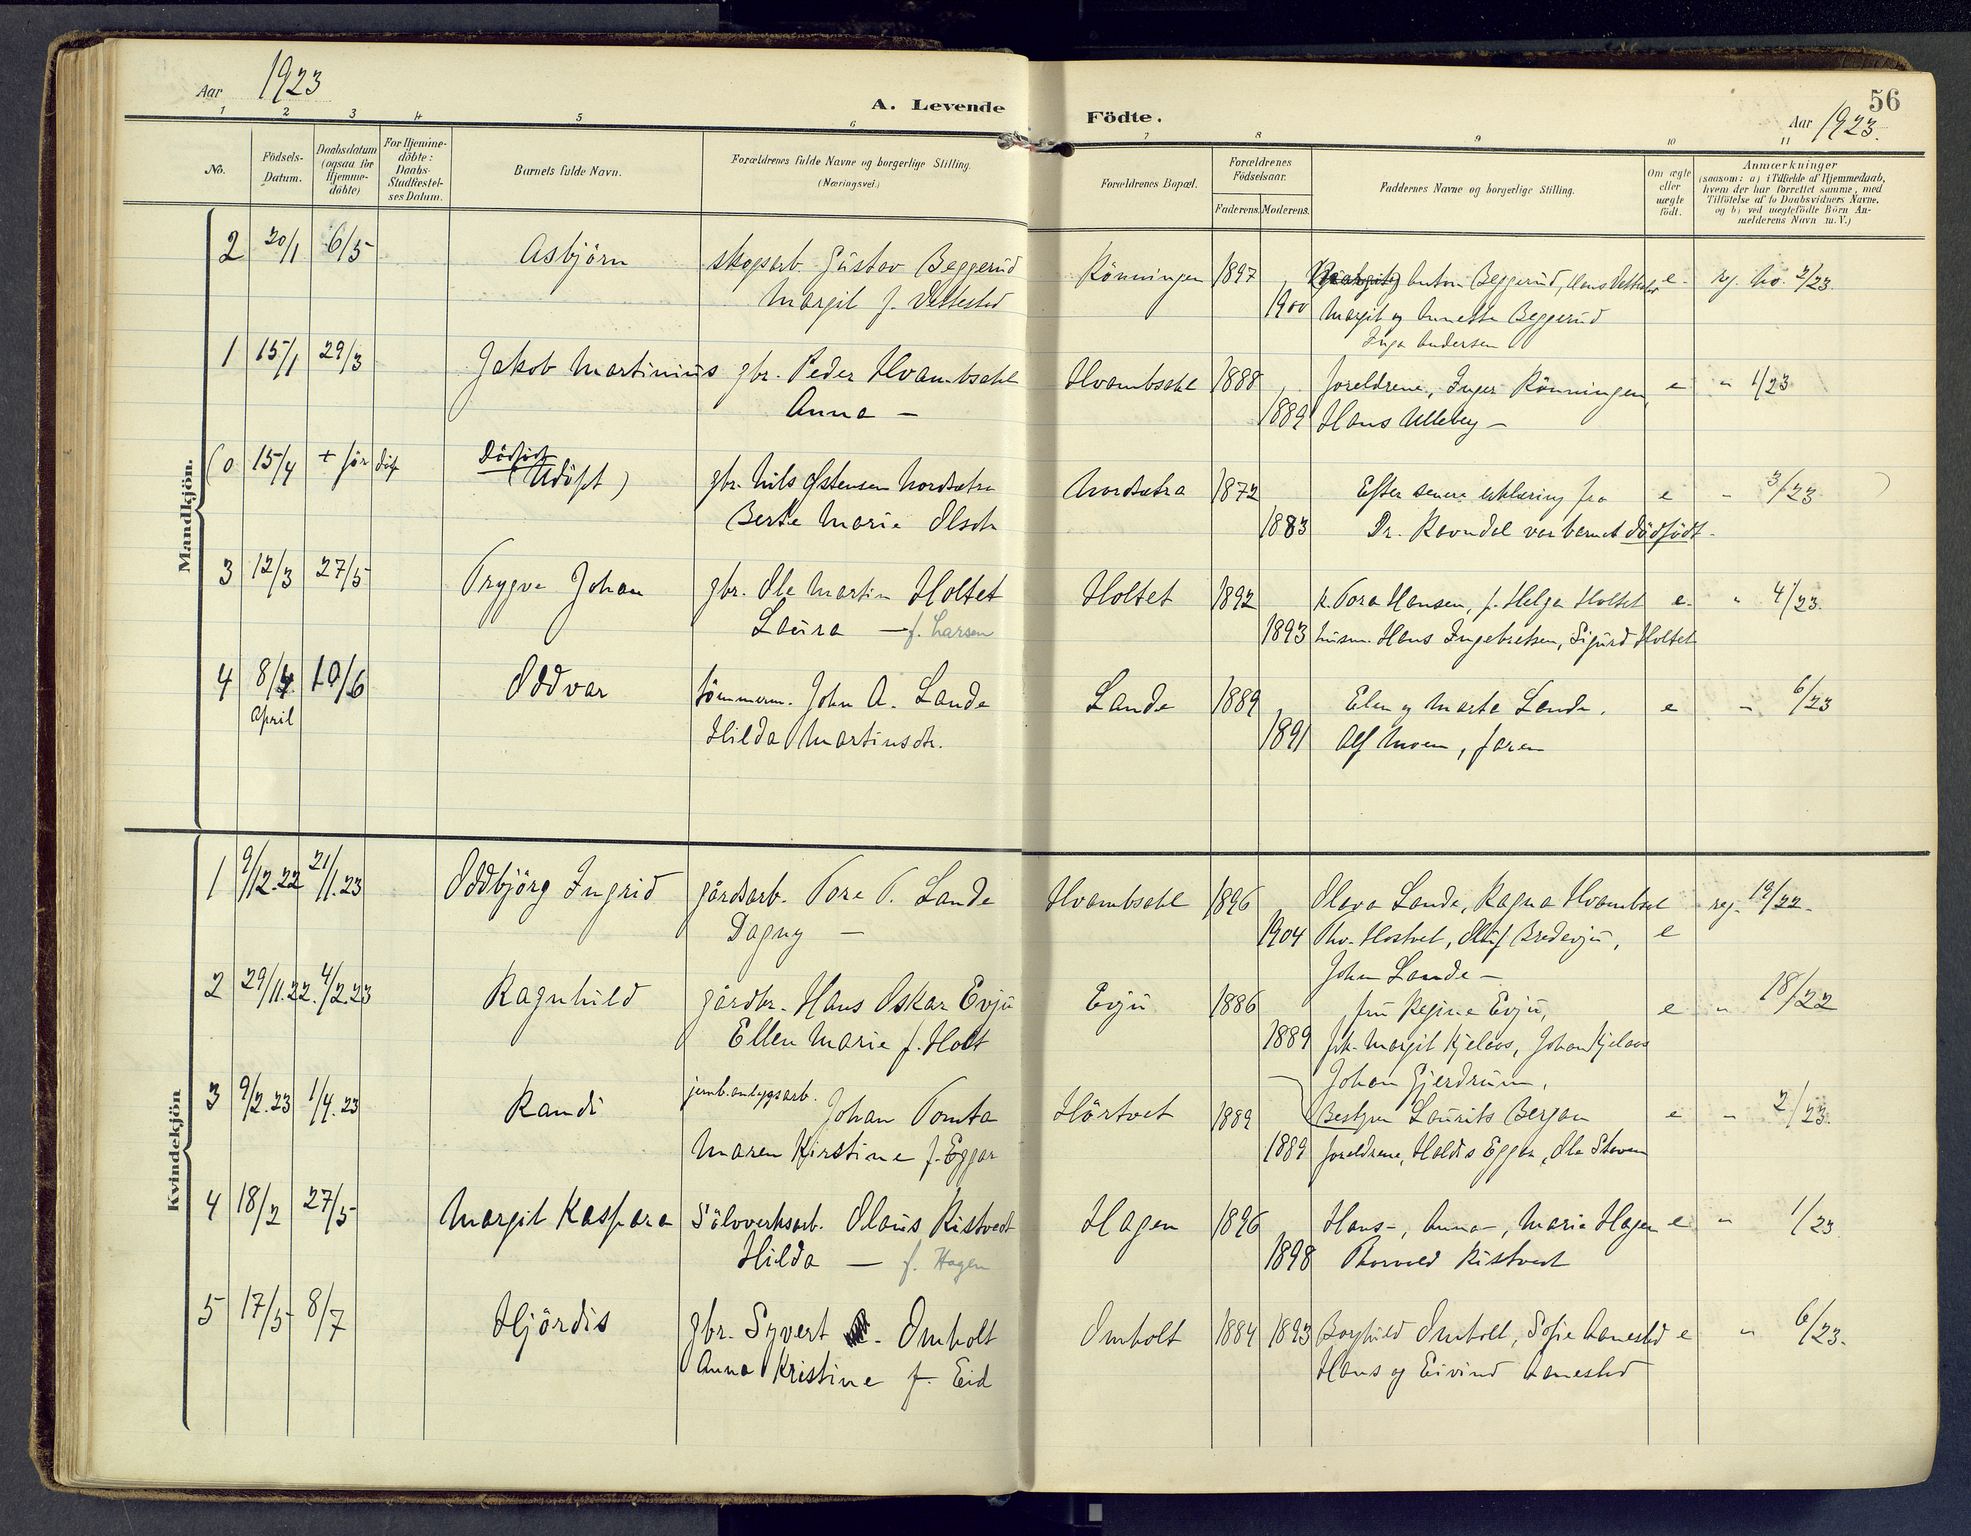 Aar 1923
A. Levende
Födte.
56
Aar 1923.
1 2 3 4 5 6 7 8 9 10 11
No.
Födsels-
Datum.
Daabsdatum
(ogsaa for
Hjemme-
döbte)
For Hjemme-
döbte:
Daabs-
Stadfæstel-
ses Datum.
Barnets fulde Navn.
Forældrenes fulde Navne og borgerlige Stilling.
(Næringsvei.)
Forældrenes Bopæl.
Forældrenes
Födselsaar.
Faderens. Moderens.
Faddernes Navne og borgerlige Stilling.
Om ægte
eller
uægte
født.
Anmærkninger
(saasom: a) i Tilfælde af Hjemmedaab,
hvem der har forrettet samme, med
Tilföielse af to Daabsvidners Navne,
og b) ved uægtefödte Börn An-
melderens Navn m. V.)
Mandkjön.
2 20/1 6/5 Asbjörn skogsarb. Gustav Beggerud Rönningen 1897 Anton Beggerud, Hans Vettestad e- reg. No. 2/23.
Margit f. Vettestad 1900 Margit og Annette Beggerud
Inga Andersen
1 15/1 29/3 Jakob Martinius gbr. Peder Hvambsahl Hvambsahl 1888 foreldrene, Inger Rönningen, e " 1/23
Anna — 1889 Hans Ulleberg —
(0 15/4 + för döp Dödfödt
(Udöpt) gbr. Nils Østensen Nordsætra Nordsætra 1872 Efter senere erklæring fra e " 3/23 )
Berte Marie Olsdtr 1883 Dr. Ravndal var barnet dödfödt-
3 12/3 27/5 Trygve Johan gbr. Ole Martin Holtet Holtet 1892 k. Tora Hansen, p. Helga Holtet e- " 4/23.
Laura — f. Larsen 1893 husm. Hans Ingebretsen, Sigurd Holtet
4 8/4. 10/6 Oddvar tömmerm. John A. Lande Lande 1889 Elen og Marta Lande. e " 6/23
April Hilda Martinsdtr. 1891 Alf Moen, faren
Kvindekjön
1 9/12.22 21/1.23 Oddbjörg Ingrid gårdsarb. Tore T. Lande Hvambsahl 1896 Olava Lande, Ragna Hvambsal e reg. 19/22-
Dagny — 1904 Thv. Hostvet, Bredevju,
John Lande —
2 29/11.22. 4/2.23 Ragnhild gårdbr. Hans Oskar Evju Evju 1886 fru Regine Evju, e " 18/22
Ellen Marie f. Holt 1889 frk. Margit Kjelaas, Johan Kjelaas
Johan Gjerdrum,
3 9/2.23 1/4.23 Randi jernb.anlegsarb. Johan Tomta Hörtvet 1889 Bestyrer Laurits Berjan e " 2/23.
Maren Kirstine f. Eggar 1889 foreldrene, Haldis Eggar, Ole Staven
4 18/2 27/5 Margit Kaspara Sölvverksarb. Olaus Ristvedt Hagen 1896 Hans-, Anna-, Marie Hagen e " 1/23
Hilda — f. Hagen 1898 Thorvald Ristvedt
5 17/5 8/7 Hjördis gbr. Syvert Omholt Omholt 1884 1893 Borghild Omholt, Sofie Aanestad e " 6/23.
Anna Kristine f. Eid Hans og Eivind Aanestad